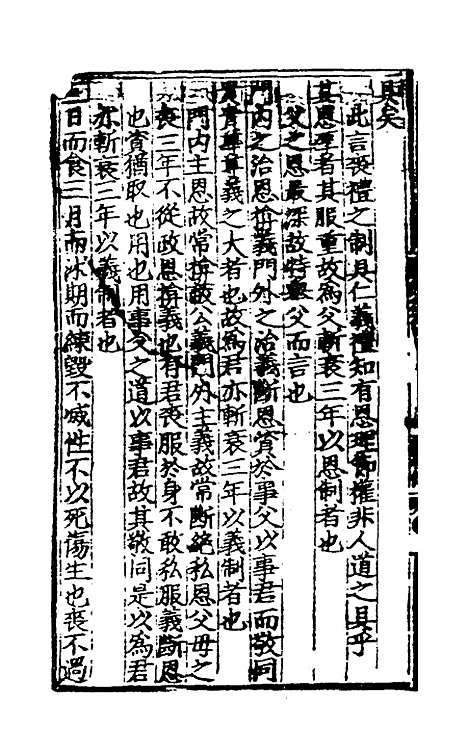 具矣
此言喪禮之制具仁義禮知有恩理節權非人道之具乎
其恩厚者其服重故為父斬衰三年以恩制者也
父之恩最深故特舉父而言也
門內之治恩揜義門外之治義斷恩資於事父以事君而敬同
貴貴尊尊義之大者也故為君亦斬衰三年以義制者也
門內主恩故常揜公義門外主義故常斷絕私恩父母之
喪三年不從政恩揜義也有君喪服於身不敢私服義斷恩
也資猶取也用也用事父之道以事君故其敬同是以為君
亦斬衰三年以義制者也
三日而食三月而沐期而練毀不滅性不以死傷生也喪不過